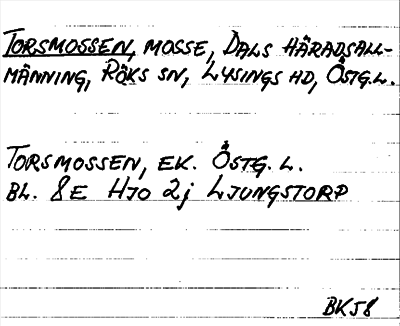 TORSMOSSEN, MOSSE, DALS HÄRADSALL-
MÄNNING, RÖKS SN, LYSINGS HD, ÖSTG.L.
TORSMOSSEN, EK. ÖSTG. L.
BL. 8E HJO 2j LJUNGSTORP
BK58